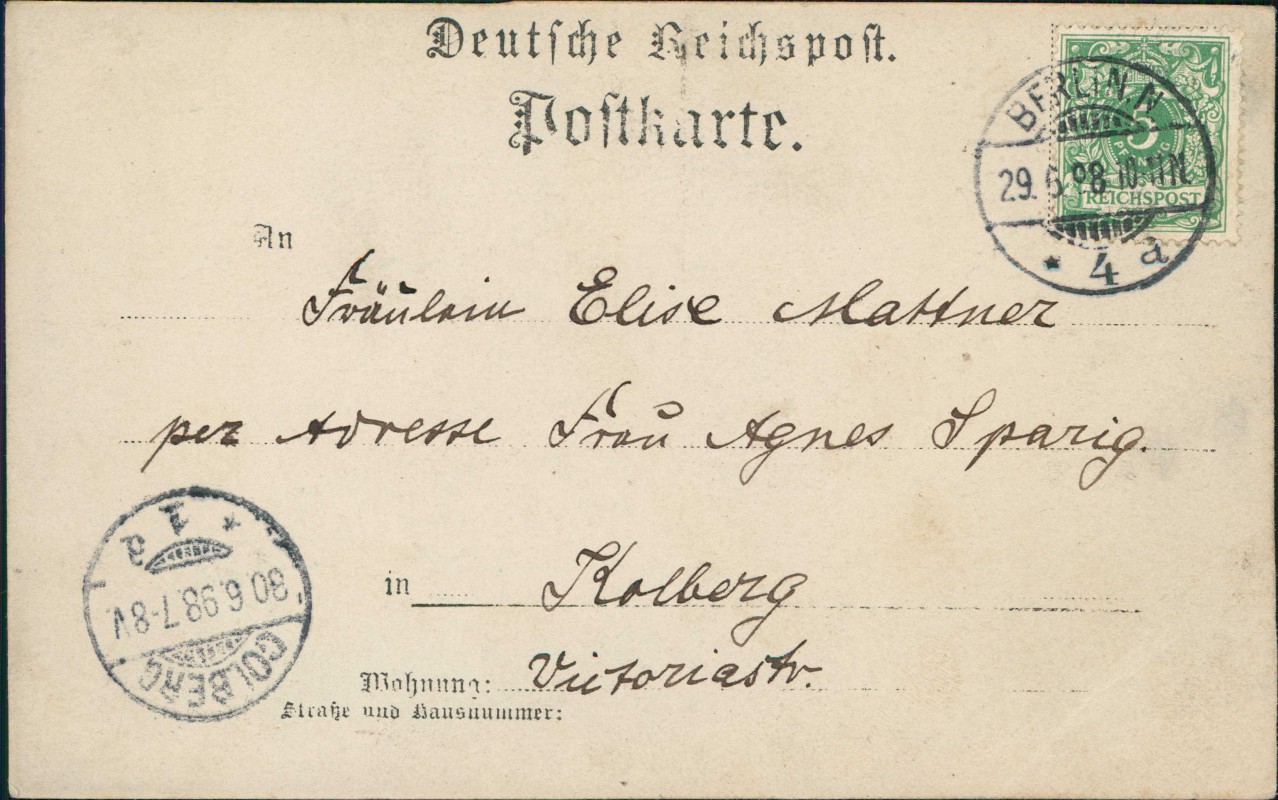 Deutsche Reichspost.
Postkarte.
BERLIN. N
29.6.98 10.11N.
* 4 a
5
PFENNIG
REICHSPOST
An
Fräulein Elise Mattner
per Adresse Frau Agnes Sparig.
in Kolberg
Wohnung: Victoriastr.
Straße und Hausnummer:
COLBERG
30.6.98.7-8V.
* 1 a